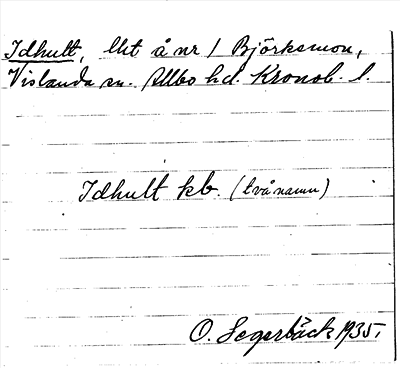 Idhult, lht å nr 1 Björksmon,
Vislanda sn. Allbo hd. Kronob. l.
Idhult kb. (två namn)
O. Segerbäck 1935.